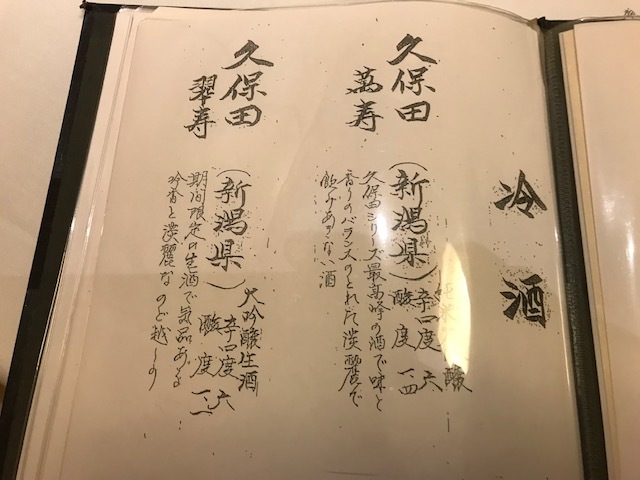 冷酒
久保田
萬寿
(新潟県)
辛口度 六
酸度 一・四
久保田シリーズ最高峰の酒で味と
香りのバランスのとれた淡麗で
飲みあきない酒
久保田
翠寿
(新潟県)
大吟醸生酒
辛口度 六
酸度 一・一
期間限定の生酒で気品ある
吟香と淡麗なのど越しの